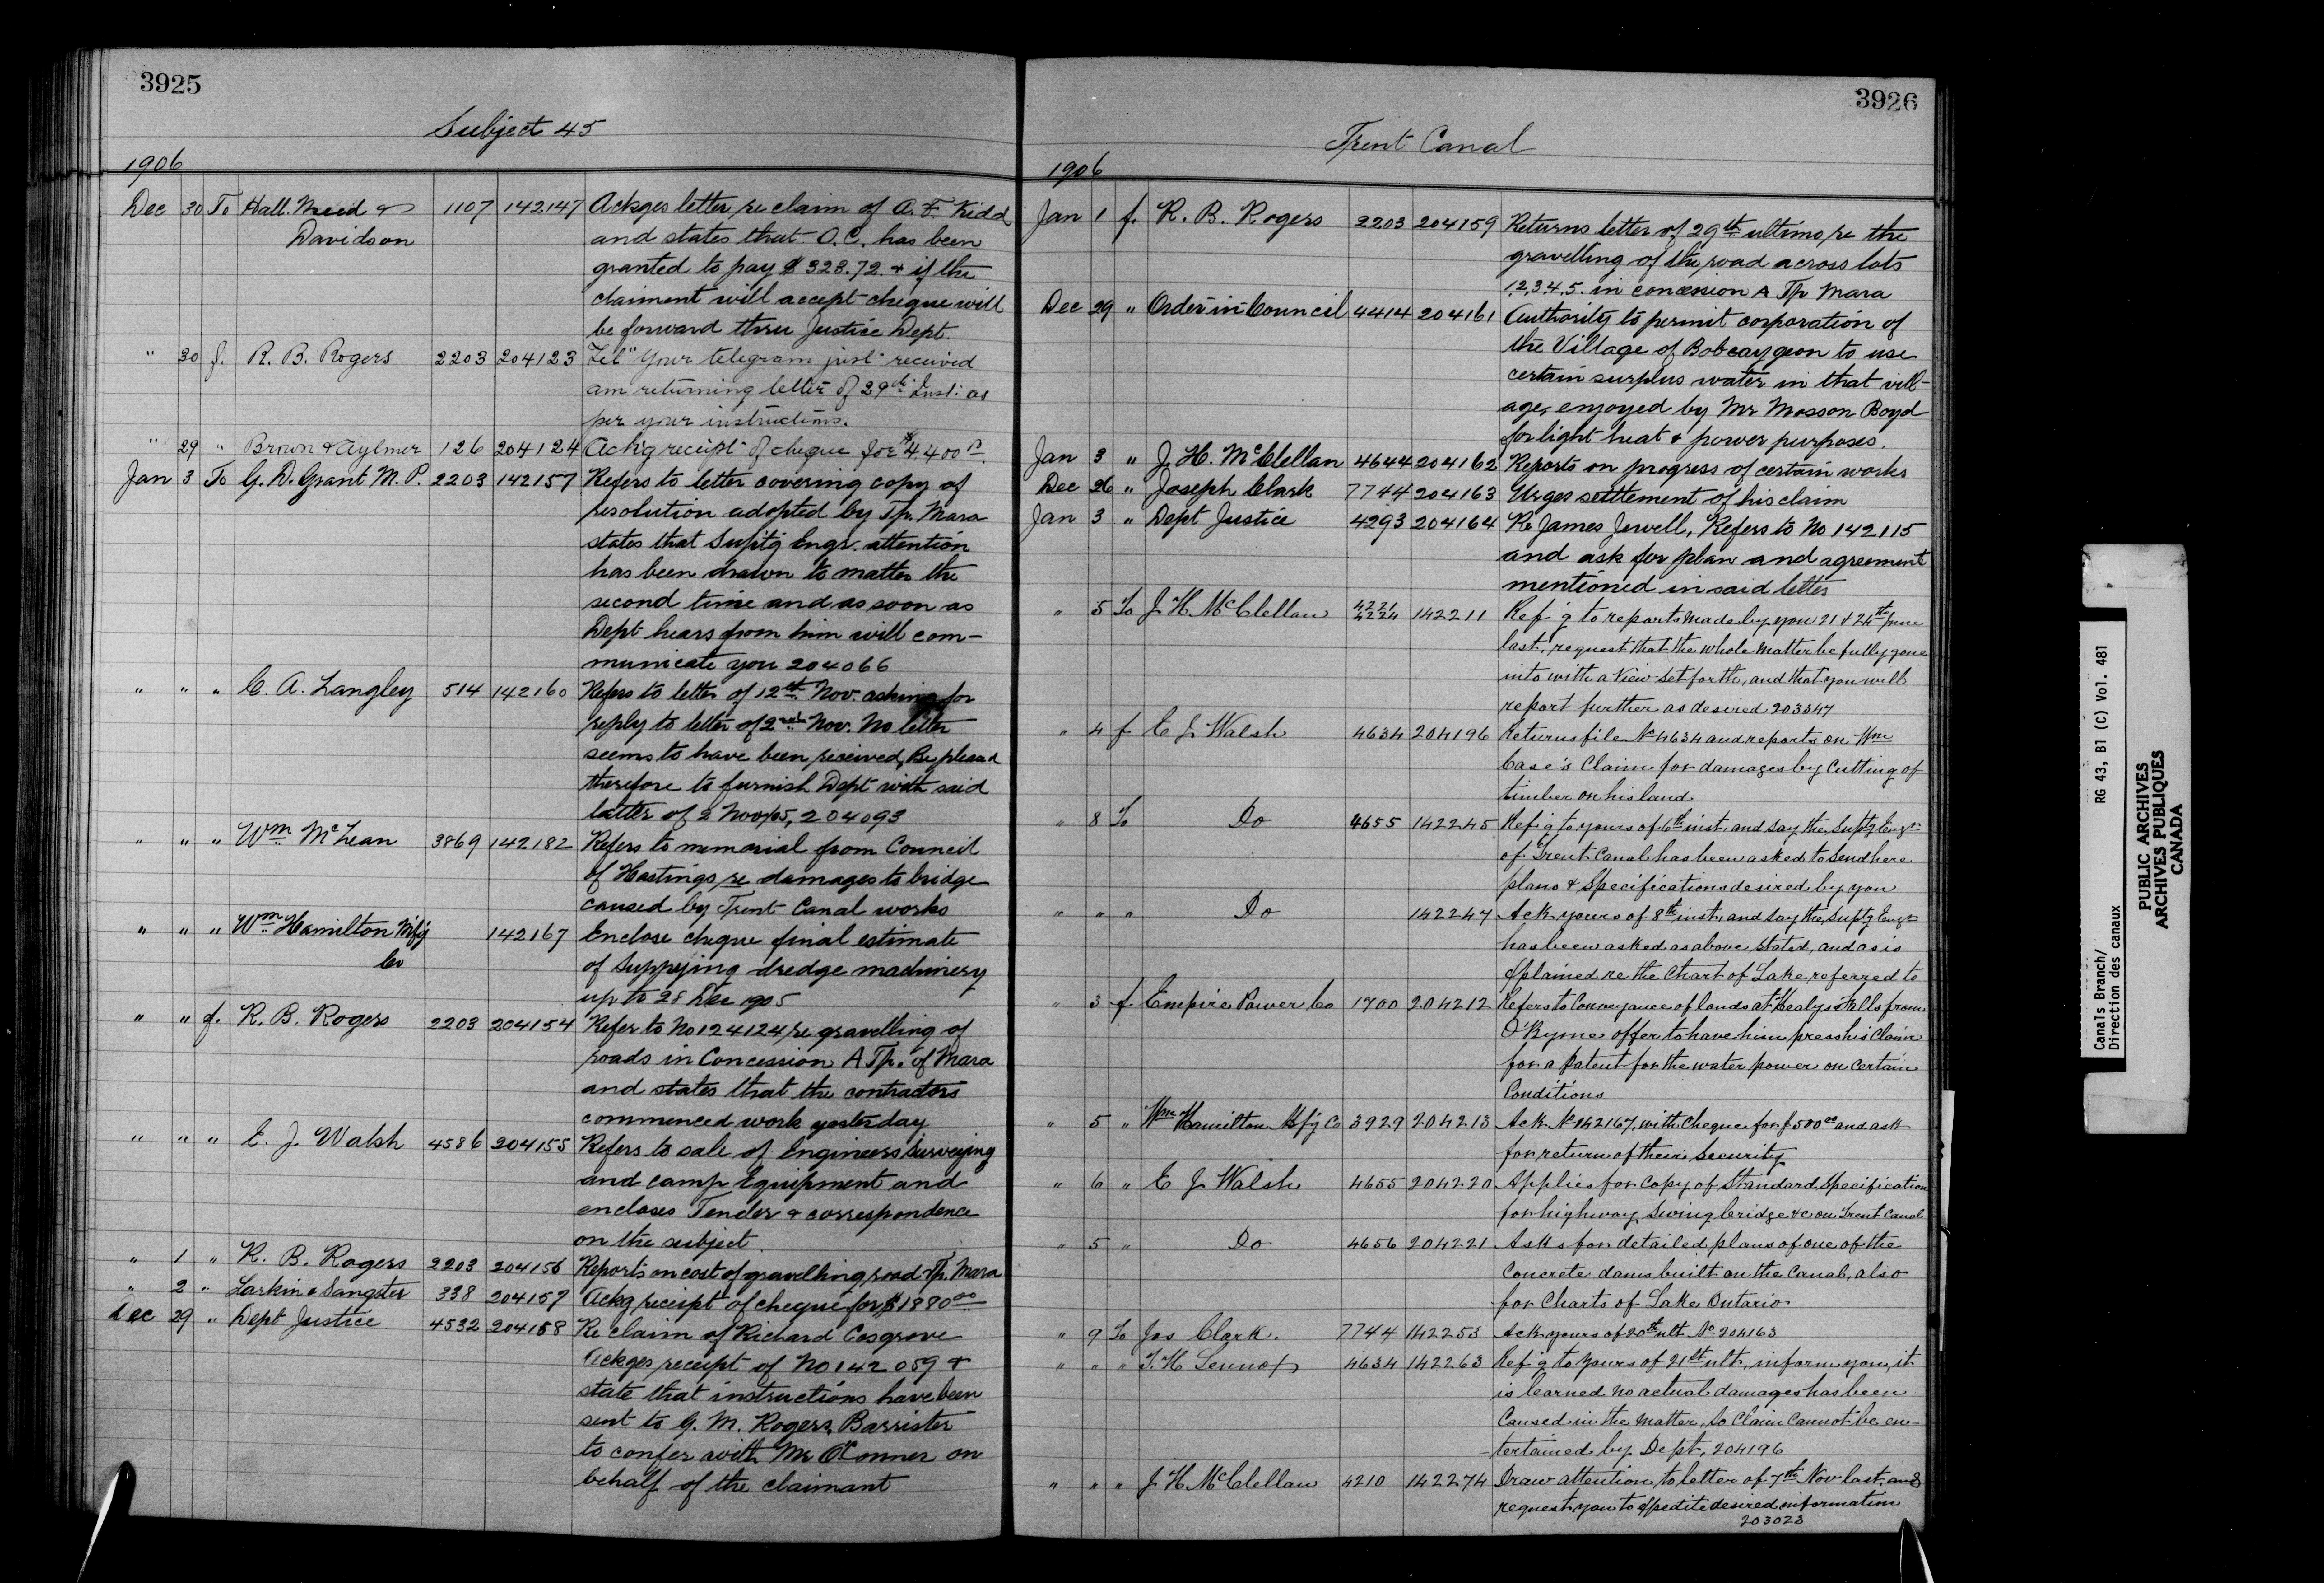 3925
Subject 45
1906
Dec 30 To Hall. Meed & 1107 142147 Ackges letter re claim of A. F. Kidd
Davidson and states that O.C. has been
granted to pay $328.72. & if the
claiment will accept cheque will
be forward thru Justice Dept.
" 30 f. R. B. Rogers 2203 204123 Tel "Your telegram just received
am returning letter of 29th Inst: as
per your instructions.
" 29 " Brown & Aylmer 126 204124 Ackg receipt of cheque for $4400
Jan 3 To G. D. Grant M. P. 2203 142157 Refers to letter covering copy of
resolution adopted by Tp. Mara
states that Suptg Engr. attention
has been drawn to matter the
second time and as soon as
Dept hears from him will com-
municate you 204066
" " " C. A. Langley 514 142160 Refers to letter of 12th Nov. asking for
reply to letter of 2nd Nov. No letter
seems to have been received, Be pleased
therefore to furnish Dept with said
latter of 2 Nov/05, 204093
" " " Wm McLean 3869 142182 Refers to memorial from Council
of Hastings re damages to bridge
caused by Trent Canal works
" " " Wm Hamilton Mfg 142167 Enclose cheque final estimate
Co of Suppying dredge machinery
up to 28 Dec 1905
" " f. R. B. Rogers 2203 204154 Refer to No 124124 re gravelling of
roads in Concession A Tp. of Mara
and states that the contractors
commenced work yesterday
" " " E. J. Walsh 4586 204155 Refers to sale of Engineers Surveying
and camp Equipment and
encloses Tender & correspondence
on the subject.
" 1 " R. B. Rogers 2203 204156 Reports on cost of gravelling road Tp. Mara
" 2 " Larkin & Sangster 338 204157 Ackg receipt of cheque for $1880.00
Dec 29 " Dept Justice 4532 204158 Re claim of Richard Cosgrove
Ackges receipt of No 142059 &
state that instructions have been
sent to G. M. Rogers, Barrister
to confer with Mr O'Connor on
behalf of the claimant
3926
Trent Canal
1906
Jan 1 f. R. B. Rogers 2203 204159 Returns letter of 29th ultimo re the
gravelling of the road across lots
1,2,3,4,5. in concession A Tp Mara
Dec 29 " Order-in-Council 4414 204161 Authority to permit corporation of
the Village of Bobcaygeon to use
certain surplus water in that vill-
age, enjoyed by Mr Mosson Boyd
for light heat & power purposes.
Jan 3 " J. H. McClellan 4644 204162 Reports on progress of certain works
Dec 26 " Joseph Clark 7744 204163 Urges settlement of his claim
Jan 3 " Dept Justice 4293 204164 Re James Jewell, Refers to No 142115
and ask for plan and agreement
mentioned in said letter
" 5 To J H McClellan 4221 4224 142211 Ref'g to reports made by you 21 & 24th June
last, request that the whole matter be fully gone
into with a view set forth, and that you will
report further as desired 203347
" 4 f E J Walsh 4634 204196 Returns file No 4634 and reports on Wm
Case's Claim for damages by Cutting of
timber on his land
" 8 To Do 4655 142245 Ref'g to yours of 6th inst and say the Suptg Engr
of Trent Canal has been asked to Send here
plans & Specifications desired by you
" " " Do 142247 Ack yours of 8th inst, and say the Suptg Engr
has been asked as above stated, and as is
xplained re the Chart of Lake, referred to
" 3 f Empire Power Co 1700 204212 Refers to Conveyance of lands at Healys Falls from
O'Byrne offer to have him press his Claim
for a Patent for the water power on Certain
Conditions
" 5 " Wm Hamilton Mfg Co 3929 204213 Ack No 142167 with Cheque for $500.00 and ask
for return of their Security
" 6 " E J Walsh 4655 204220 Applies for Copy of Standard Specification
for highway Swing bridge &c on Trent Canal
" 5 " Do 4656 204221 Asks for detailed plans of one of the
Concrete dams built on the Canal, also
for Charts of Lake Ontario
" 9 To Jos Clark. 7744 142253 Ack yours of 20th ult No 204163
" " " T. H Lennox 4634 142263 Ref'g to yours of 21st ult, inform you, it
is learned no actual damages has been
Caused in the matter, So Claim Cannot be en-
-tertained by Dept, 204196
" " " J H McClellan 4210 142274 Draw attention, to letter of 7th Nov last, and
request you to xpedite desired information
203023
Canals Branch/ RG 43, B1 (C) Vol. 481
Direction des canaux
PUBLIC ARCHIVES
ARCHIVES PUBLIQUES
CANADA